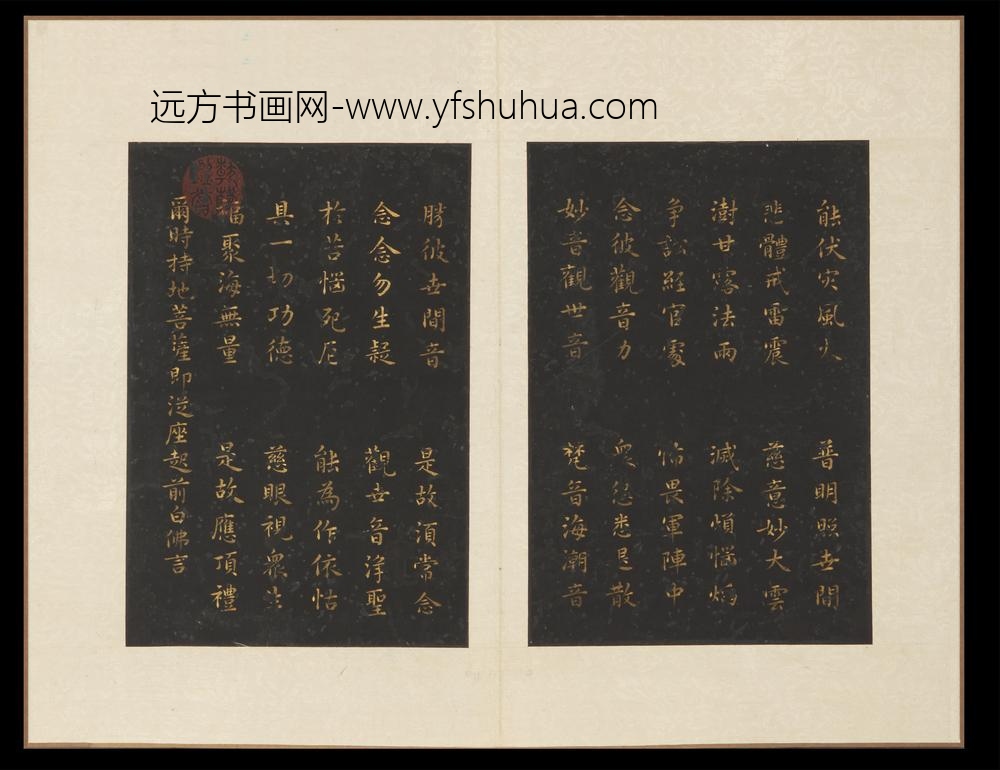 远方书画网-www.yfshuhua.com
能伏灾風火 普明照世間
悲體戒雷震 慈意妙大雲
澍甘露法雨 滅除煩惱焰
爭訟經官處 怖畏軍陣中
念彼觀音力 眾怨悉退散
妙音觀世音 梵音海潮音
勝彼世間音 是故須常念
念念勿生疑 觀世音淨聖
於苦惱死厄 能為作依怙
具一切功德 慈眼視眾生
福聚海無量 是故應頂禮
爾時持地菩薩即從座起前白佛言
乾隆鑑賞